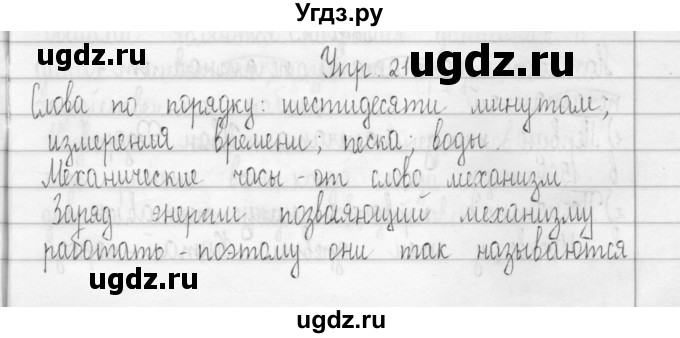 Угдз.ру
ugdz.ru ugdz.ru
Упр 21
Слова по порядку: шестидесяти минутам,
измерения времени; песка; воды.
ugdz.ru
Механические часы - от слово механизм
Заряд энергии позваяющий механизму
работать - поэтому они так называются
ugdz.ru ugdz.ru
ugdz.ru